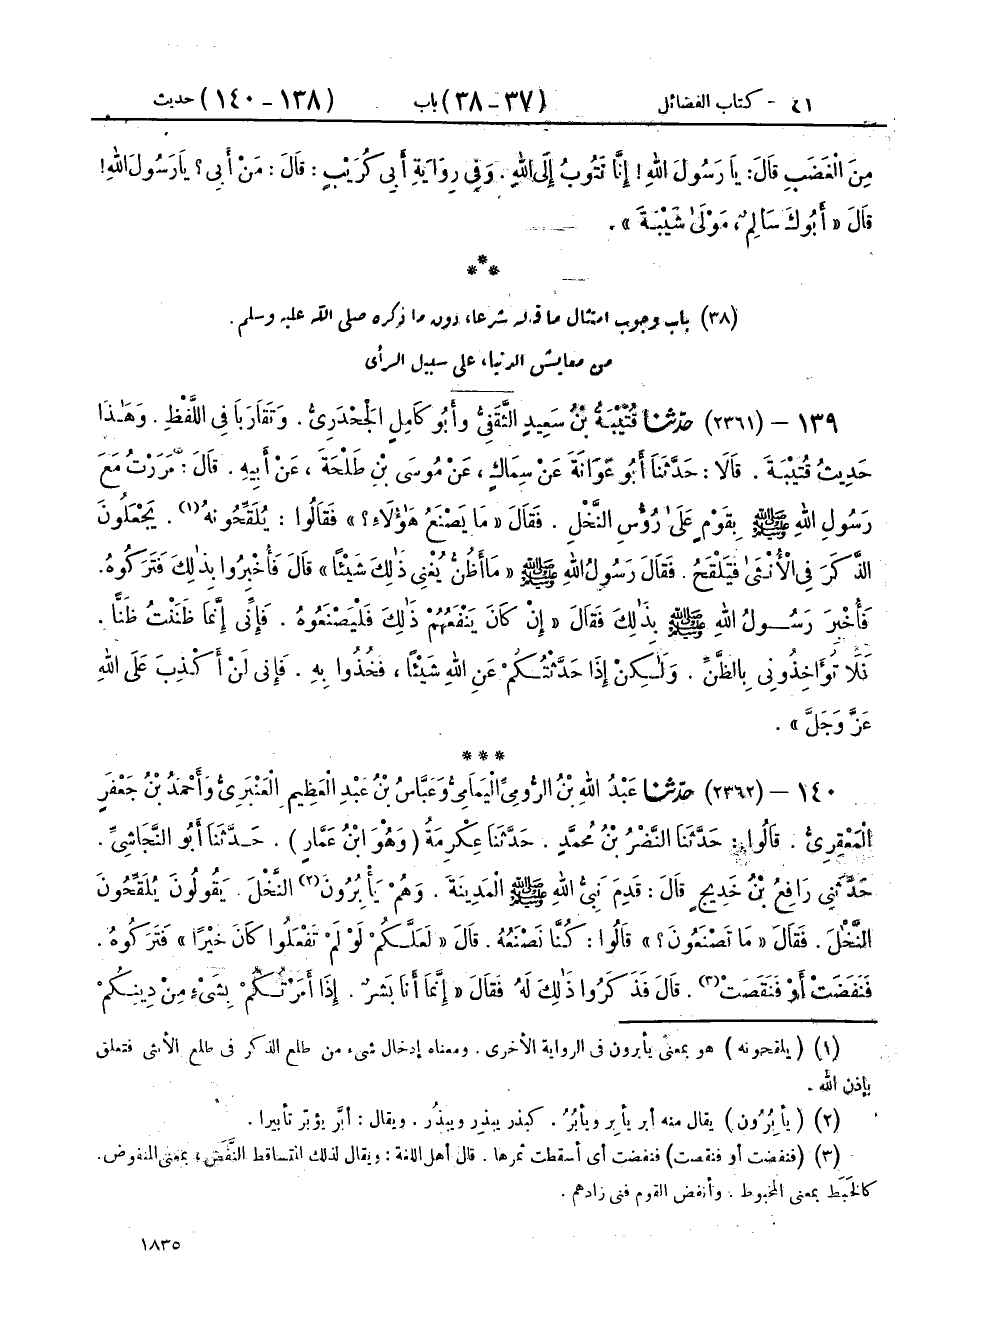 ٤٣ - كتاب الفضائل (٣٧ - ٣٨) باب (١٣٨ - ١٤٠) حديث
مِنَ الْغَضَبِ قَالَ: يَا رَسُولَ اللهِ! إِنَّا نَتُوبُ إِلَى اللهِ. وَفِي رِوَايَةِ أَبِي كُرَيْبٍ: قَالَ: مَنْ أَبِي؟ يَا رَسُولَ اللهِ!
قَالَ « أَبُوكَ سَالِمٌ، مَوْلَىٰ شَيْبَةَ ».
***
(٣٨) باب وجوب امتثال ما قاله شرعا، دون ما ذكره صلى الله عليه وسلم.
من معايش الدنيا، على سبيل الرأى
١٣٩ - (٢٣٦١) حدّثنا قُتَيْبَةُ بْنُ سَعِيدٍ الثَّقَفِيُّ وَأَبُو كَامِلٍ الْجَحْدَرِيُّ. وَتَقَارَبَا فِي اللَّفْظِ. وَهَٰذَا
حَدِيثُ قُتَيْبَةَ. قَالَا: حَدَّثَنَا أَبُو عَوَانَةَ عَنْ سِمَاكٍ، عَنْ مُوسَى بْنِ طَلْحَةَ، عَنْ أَبِيهِ. قَالَ: مَرَرْتُ مَعَ
رَسُولِ اللهِ ﷺ بِقَوْمٍ عَلَىٰ رُؤُسِ النَّخْلِ. فَقَالَ « مَا يَصْنَعُ هَٰؤُلَاءِ؟ » فَقَالُوا: يُلَقِّحُونَهُ(١). يَجْعَلُونَ
الذَّكَرَ فِي الْأُنْثَىٰ فَيَلْقَحُ. فَقَالَ رَسُولُ اللهِ ﷺ « مَا أَظُنُّ يُغْنِي ذَٰلِكَ شَيْئًا » قَالَ فَأُخْبِرُوا بِذَٰلِكَ فَتَرَكُوهُ.
فَأُخْبِرَ رَسُولُ اللهِ ﷺ بِذَٰلِكَ فَقَالَ « إِنْ كَانَ يَنْفَعُهُمْ ذَٰلِكَ فَلْيَصْنَعُوهُ. فَإِنِّي إِنَّمَا ظَنَنْتُ ظَنًّا.
فَلَا تُؤَاخِذُونِي بِالظَّنِّ. وَلَٰكِنْ إِذَا حَدَّثْتُكُمْ عَنِ اللهِ شَيْئًا، فَخُذُوا بِهِ. فَإِنِّي لَنْ أَكْذِبَ عَلَى اللهِ
عَزَّ وَجَلَّ ».
***
١٤٠ - (٢٣٦٢) حدّثنا عَبْدُ اللهِ بْنُ الرُّومِيِّ الْيَمَامِيُّ وَعَبَّاسُ بْنُ عَبْدِ الْعَظِيمِ الْعَنْبَرِيُّ وَأَحْمَدُ بْنُ جَعْفَرٍ
الْمَعْقِرِيُّ. قَالُوا: حَدَّثَنَا النَّضْرُ بْنُ مُحَمَّدٍ. حَدَّثَنَا عِكْرِمَةُ (وَهُوَ ابْنُ عَمَّارٍ). حَدَّثَنَا أَبُو النَّجَاشِيِّ.
حَدَّثَنِي رَافِعُ بْنُ خَدِيجٍ قَالَ: قَدِمَ نَبِيُّ اللهِ ﷺ الْمَدِينَةَ. وَهُمْ يَأْبُرُونَ(٢) النَّخْلَ. يَقُولُونَ يُلَقِّحُونَ
النَّخْلَ. فَقَالَ « مَا تَصْنَعُونَ؟ » قَالُوا: كُنَّا نَصْنَعُهُ. قَالَ « لَعَلَّكُمْ لَوْ لَمْ تَفْعَلُوا كَانَ خَيْرًا » فَتَرَكُوهُ.
فَنَفَضَتْ أَوْ فَنَقَصَتْ(٣). قَالَ فَذَكَرُوا ذَٰلِكَ لَهُ فَقَالَ « إِنَّمَا أَنَا بَشَرٌ. إِذَا أَمَرْتُكُمْ بِشَيْءٍ مِنْ دِينِكُمْ
(١) (يلقحونه) هو بمعنى يأبرون فى الرواية الأخرى. ومعناه إدخال شىء من طلع الذكر فى طلع الأنثى فتعلق
بإذن الله.
(٢) (يأبُرُون) يقال منه أبر يأبِر ويأبُرُ. كبذر يبذِر ويبذُر. ويقال: أبَّر يؤبّر تأبيرا.
(٣) (فنفضت أو فنقصت) فنفضت أى أسقطت ثمرها. قال أهل اللغة: ويقال لذلك المتساقط النَّفَض، بمعنى المنفوض.
كالخَبَط بمعنى المخبوط. وأنفض القوم فنى زادهم.
١٨٣٥